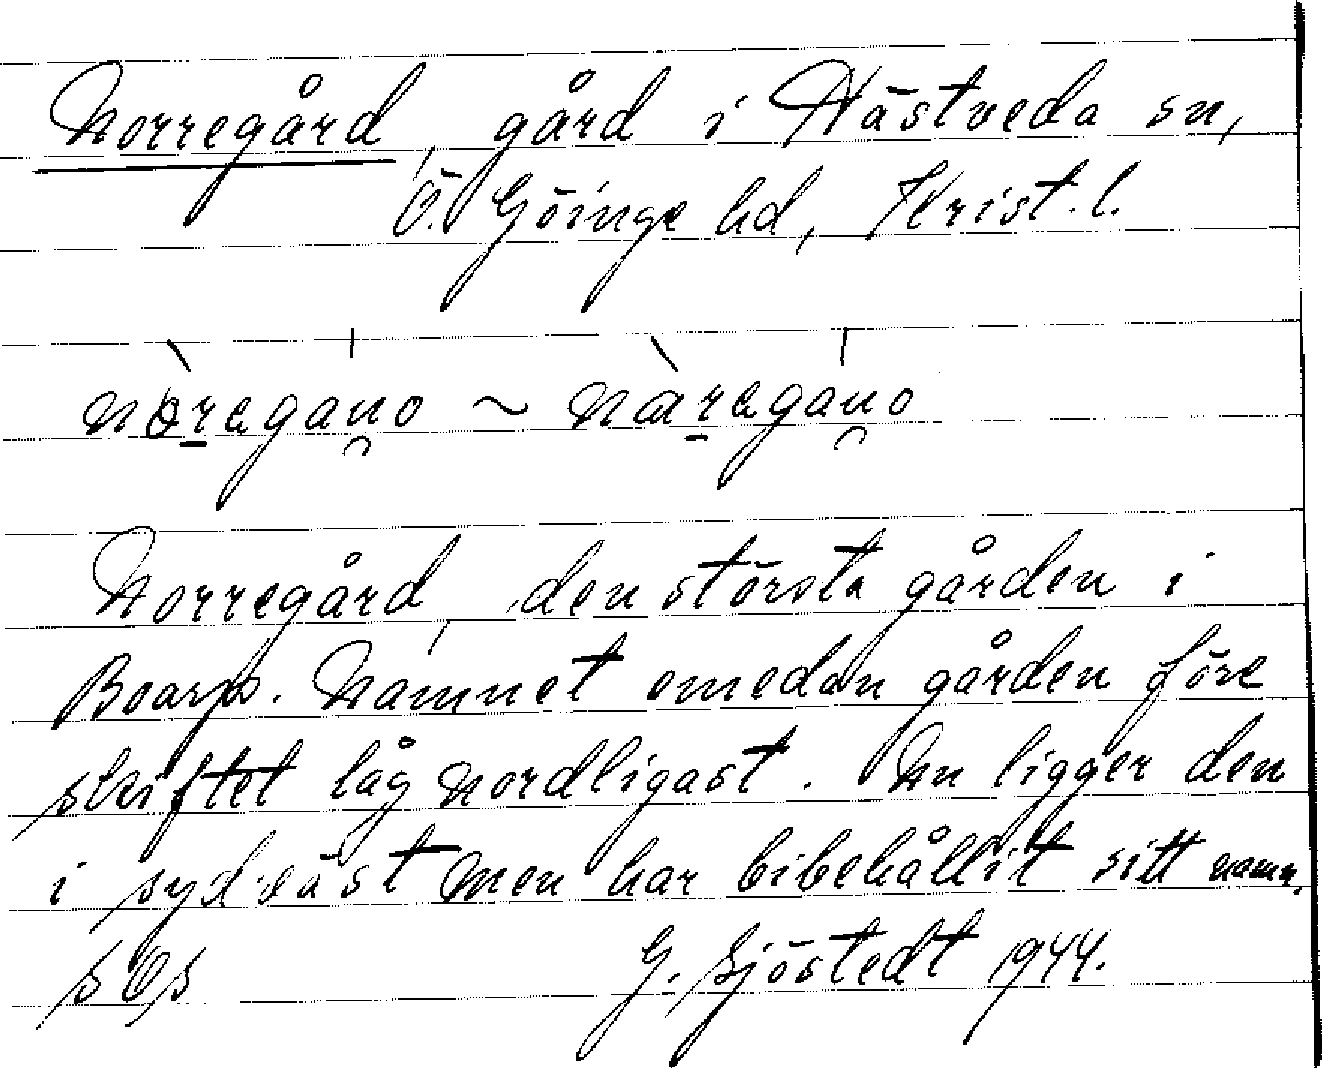 Norregård, gård i Hästveda sn,
Ö. Göinge hd, Krist. l.
nòregáu̯o ~ nàregáu̯o
Norregård, den största gården i
Boarp. Namnet emedan gården före
skiftet låg nordligast. Nu ligger den
i sydväst men har bibehållit sitt namn.
G. Sjöstedt 1944.